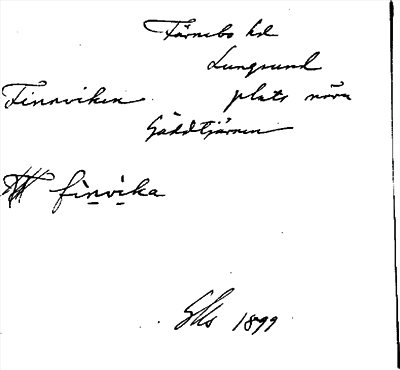 Färnebo hd
Lungsund
Finnviken plats nära
Gäddtjärnen
finvika
Gks 1899